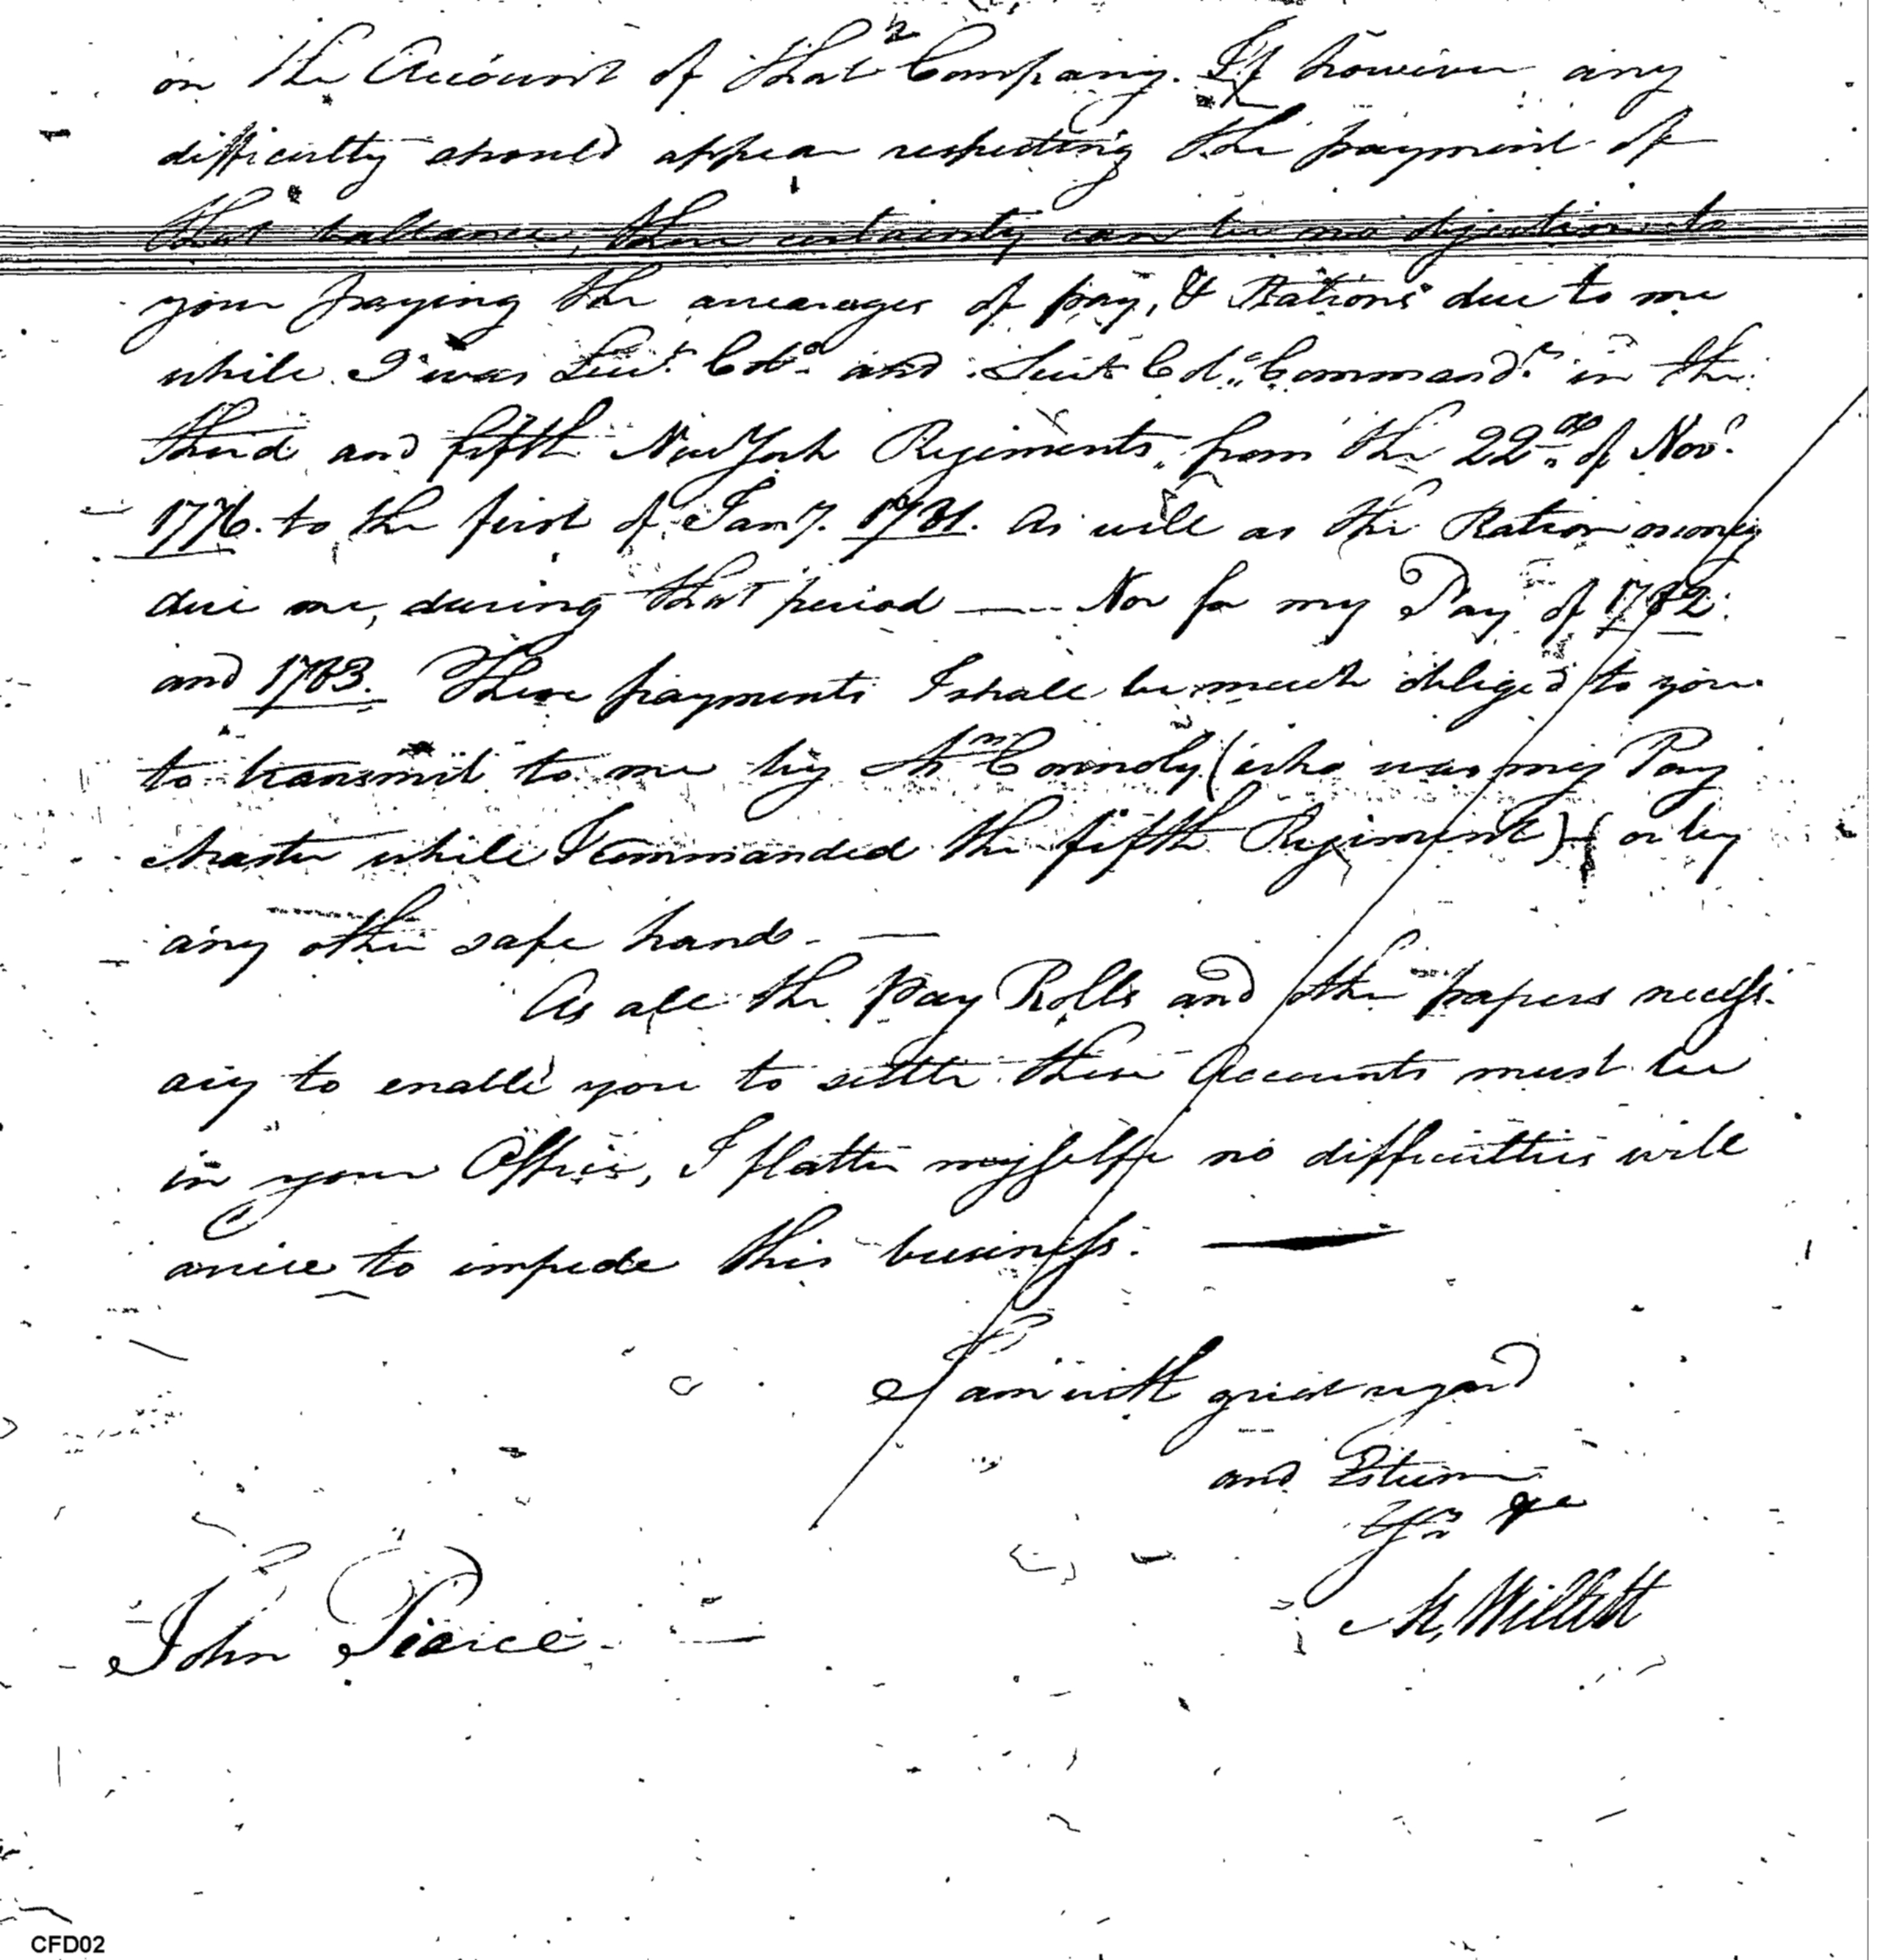 on the Account of that Company. If however any
difficulty should appear respecting the payment of
that ballance, there certainly can be no objection to
your paying the arearages of pay, & Rations due to me
while I was Lieut. Colo. and Lieut. Colo. Commandt. in the
third and fifth New York Regiments, from the 22nd. of Novr.
1776. to the first of Jany. 1781. As well as the Ration money
due me, during that period —— Nor for my Pay of 1782.
and 1783. These payments I shall be much obliged to you
to transmit to me by Mr. Connoly (who was my Pay
Master while I commanded the fifth Regiment) or by
any other safe hand. —
As all the Pay Rolls and other papers necess-
ary to enable you to settle these Accounts must be
in your Office, I flatter myselfe no difficulties will
arise to impede this business. —
I am with great regard
and Esteem
Yrs &c
M. Willett
John Pierce —
CFD02